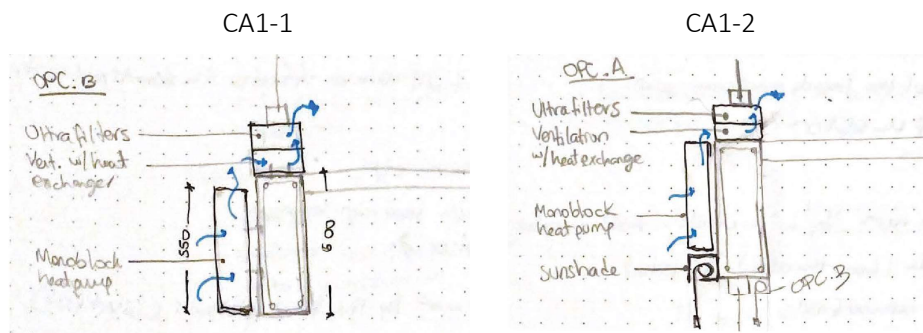 CA1-1
OPC. B
Ultrafilters
Vent. w/ heat
exchanger
550
Monoblock
heatpump
CA1-2
OPC. A
Ultrafilters
Ventilation
w/ heat exchange
Monoblock
heatpump
Sunshade
OPC. B